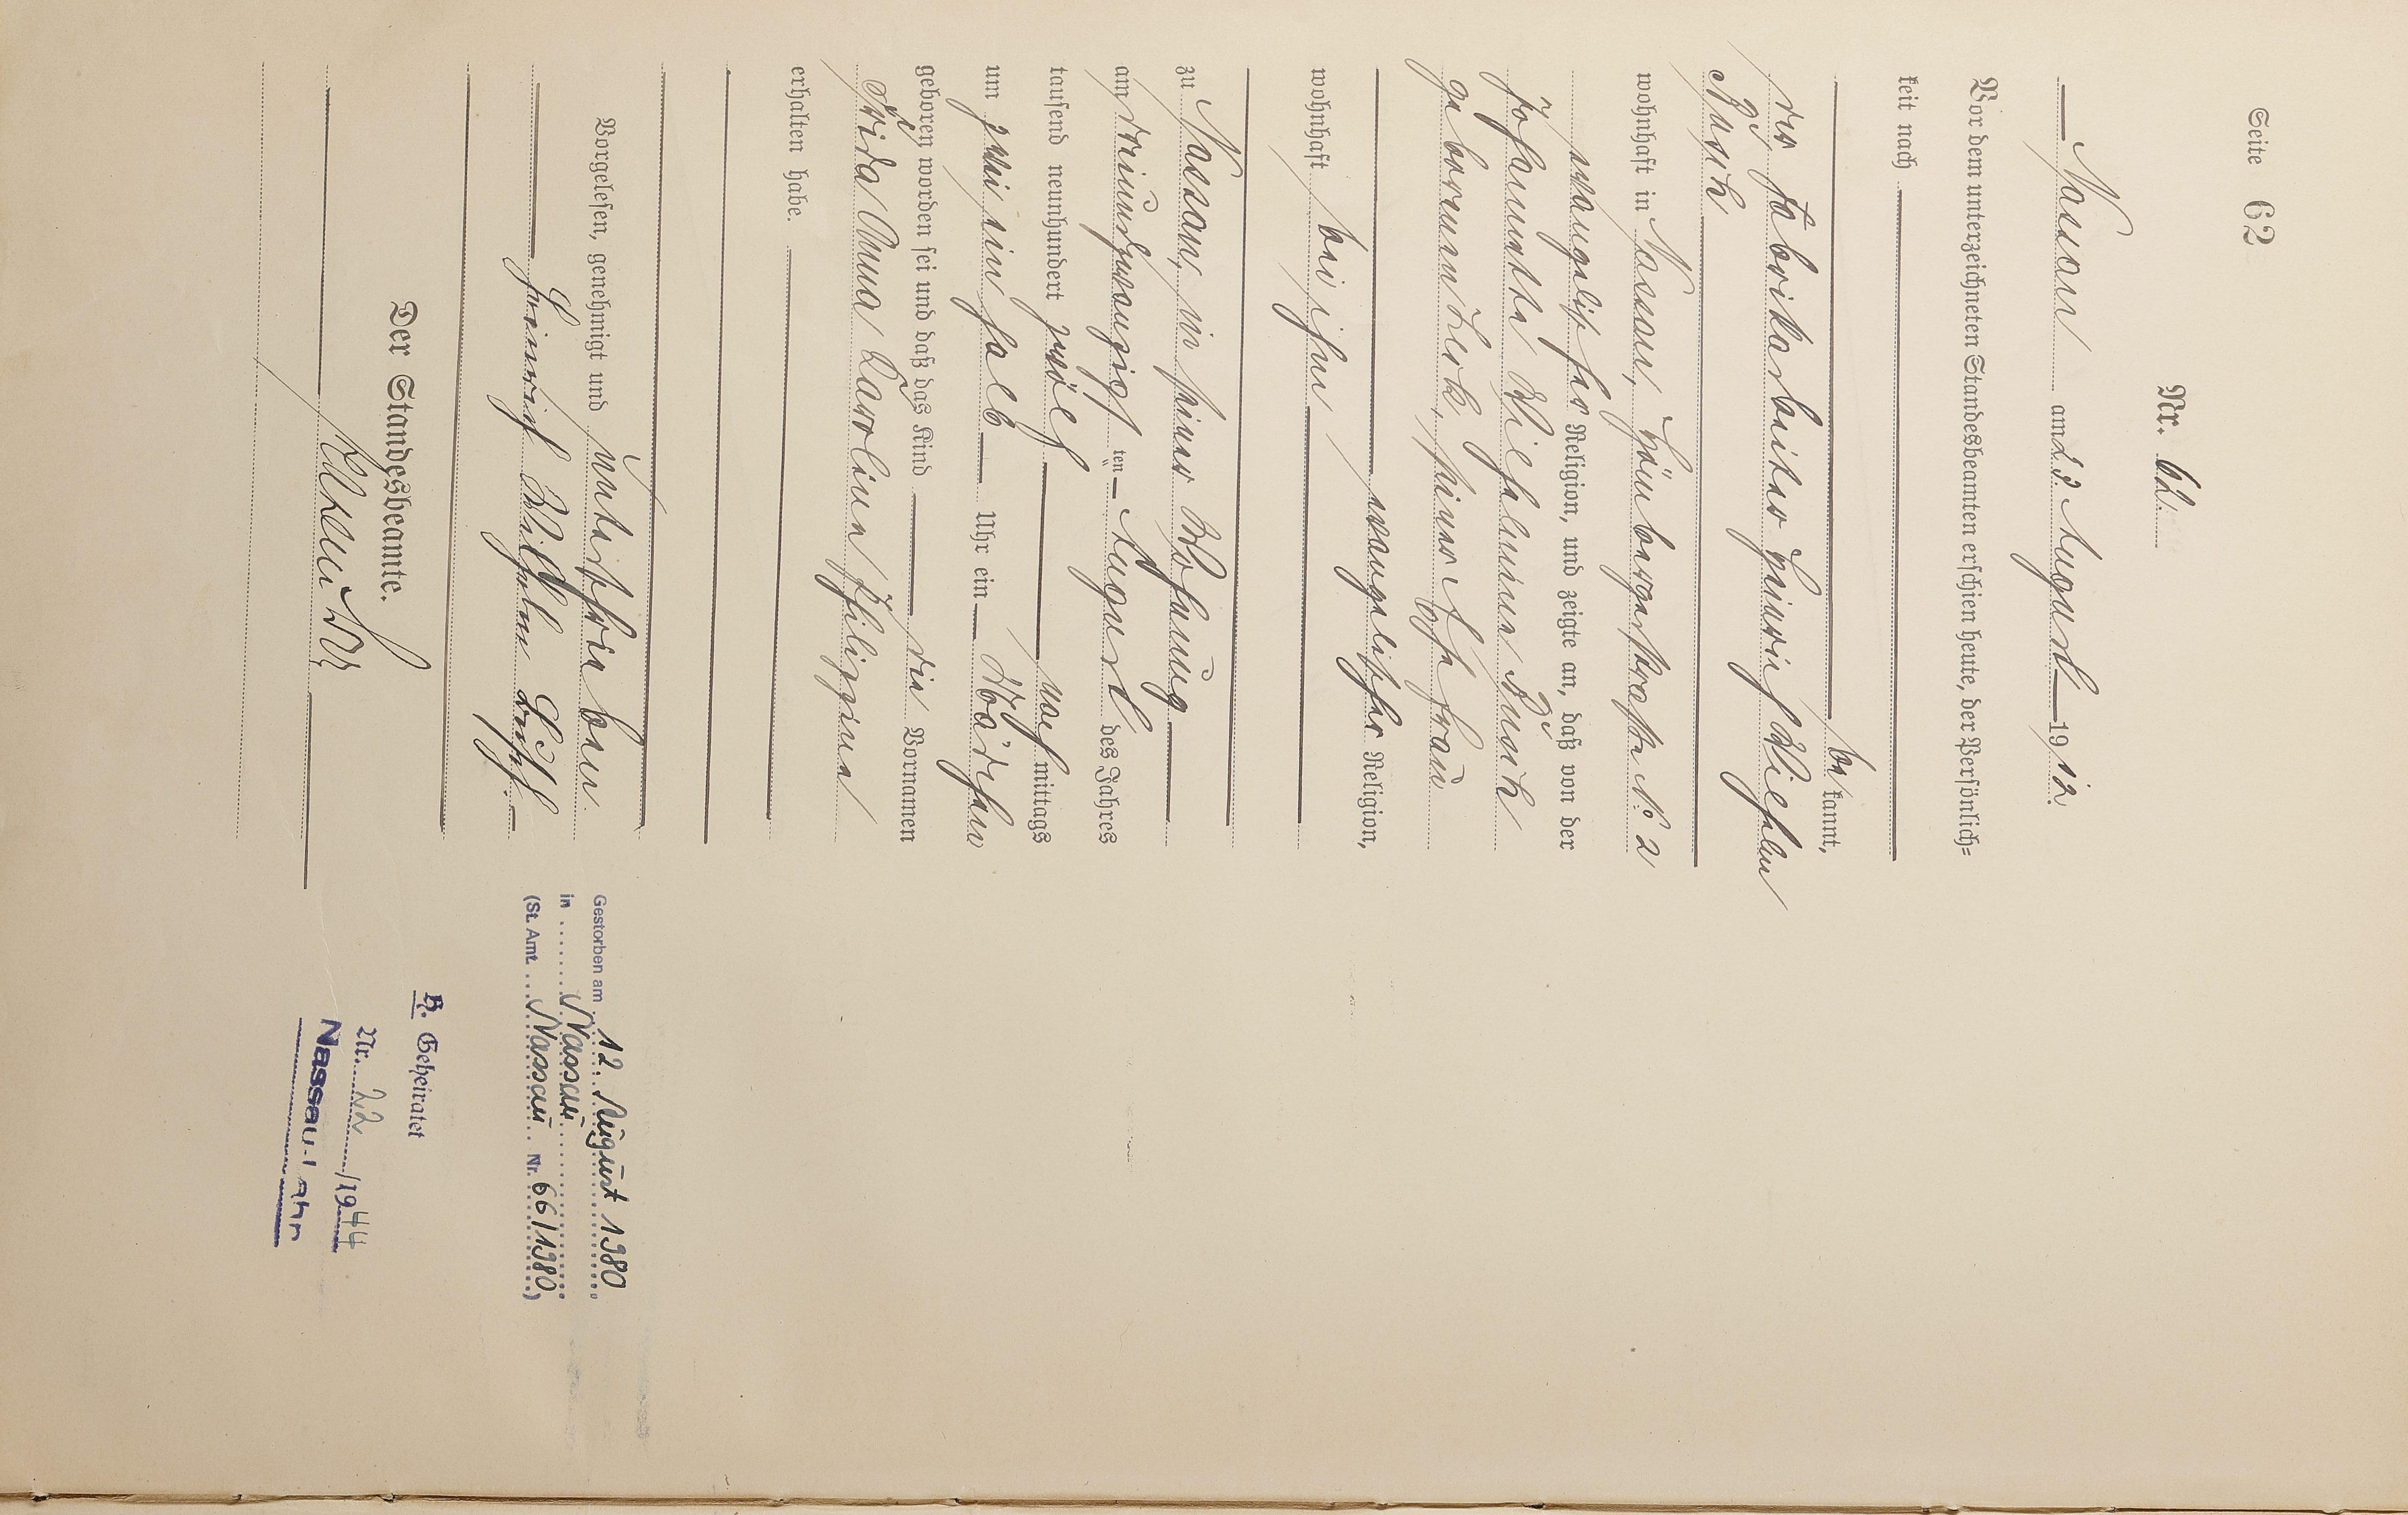 Seite 62
Nr. 62.
Nassau am 23. August 1912.
Vor dem unterzeichneten Standesbeamten erschien heute, der Persönlich-
keit nach
be kannt,
der Fabrikarbeiter Heinrich Wilhelm
Busch
wohnhaft in Nassau, Hömbergerstraße No 2
evangelischer Religion, und zeigte an, daß von der
Johannette Wilhelmine Busch
geborenen, seiner Ehefrau
evangelischer Religion,
wohnhaft bei ihm
zu Nassau, in seiner Wohnung
am dreiundzwanzigsten August des Jahres
tausend neunhundert zwölf nachmittags
um zwei ein halb Uhr ein Mädchen
geboren worden sei und daß das Kind die Vornamen
Frieda Anna Karoline Philippine
erhalten habe.
Vorgelesen, genehmigt und unterschrieben
Heinrich Wilhelm Busch.
Der Standesbeamte.
Gestorben am 12. August 1980
in Nassau
(St. Amt Nassau Nr. 66/1980)
H. Geheiratet
Nr. 22 /1944
Nassau-Lahn